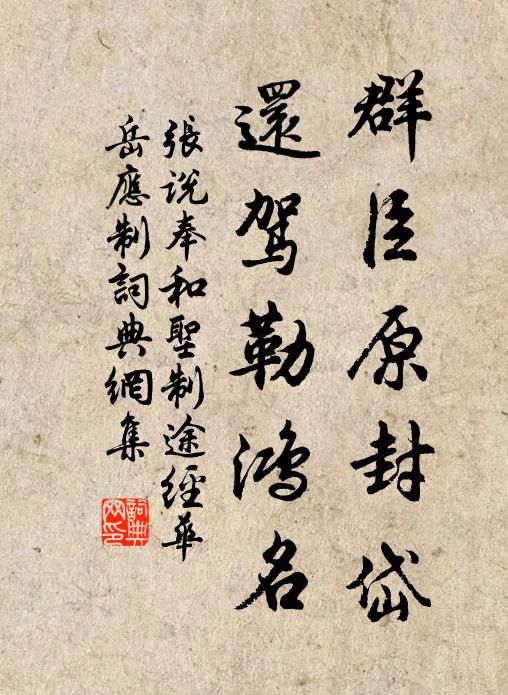 群臣原封岱
還駕勒鴻名
張說奉和聖制途經華
岳應制詞典網集
詞典網印